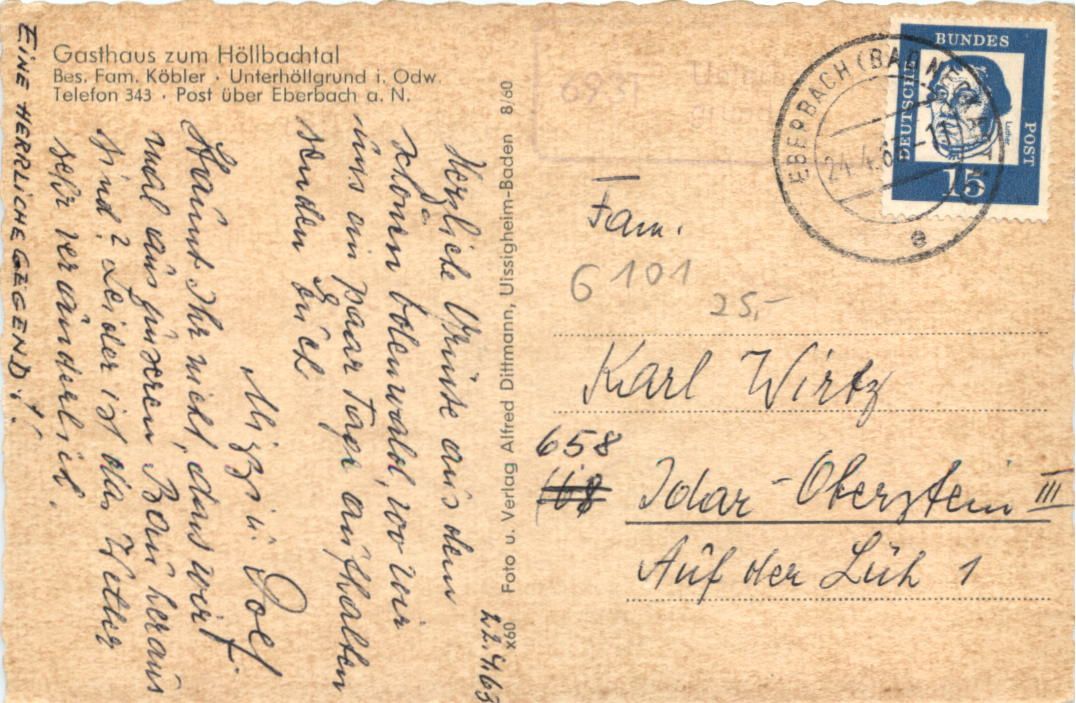 Gasthaus zum Höllbachtal
Bes. Fam. Köbler · Unterhöllgrund i. Odw.
Telefon 343 · Post über Eberbach a. N.
22.4.63
Herzliche Grüße aus dem
schönen Odenwald, wo wir
uns ein paar Tage aufhalten
senden Euch
Mizzi u.
Staunt Ihr nicht, dass wir
mal aus unserem Bau heraus
sind? Leider ist das Wetter
sehr veränderlich.
EINE HERRLICHE GEGEND!
Foto u. Verlag Alfred Dittmann, Uissigheim-Baden 8/60
x60
693
EBERBACH (BADEN)
24.4.63
e
DEUTSCHE BUNDES POST
Luther
15
Fam.
G 101
25,-
Karl Wirtz
658
Idar-Oberstein III
Auf der Lüh 1